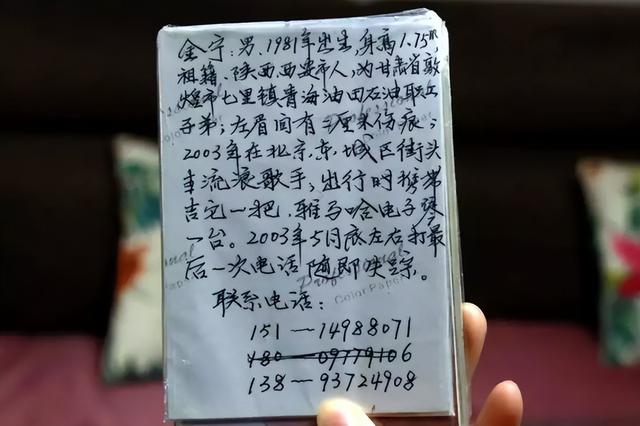 金宁:男.1981年出生,身高1.75m,
祖籍、陕西.西安市人,为甘肃省敦
煌市七里镇青海油田石油职工
子弟;左眉间有三厘米伤痕;
2003年在北京.东.城区街头
丰流浪歌手,出行时携带
吉它一把.雅马哈电子琴
一台。2003年5月底左右打最
后一次电话随即失踪。
联系电话:
151—14988071
180—09779106
138—93724908
Professional
Color Paper